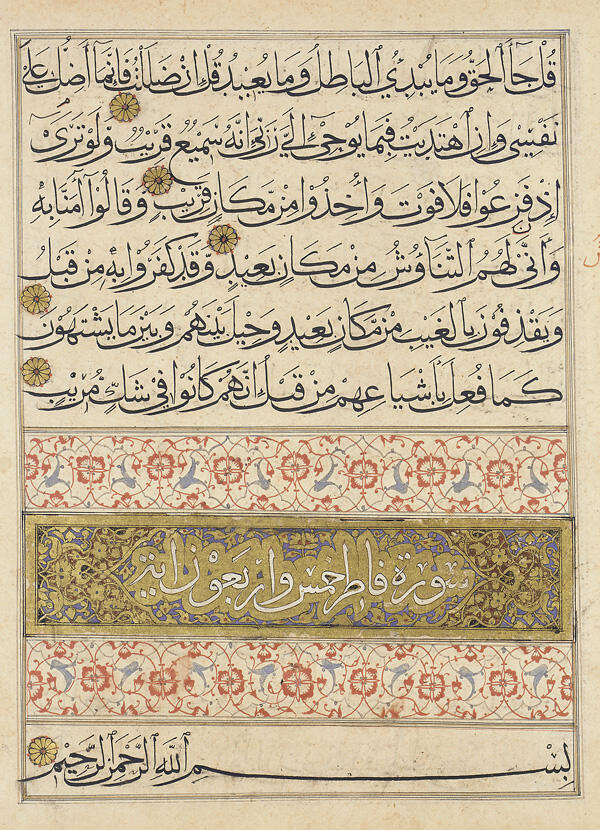 قُلْ جَآءَ الْحَقُّ وَمَا يُبْدِئُ الْبَاطِلُ وَمَا يُعِيدُ قُلْ إِنْ ضَلَلْتُ فَإِنَّمَآ أَضِلُّ عَلَىٰ
نَفْسِي وَإِنِ اهْتَدَيْتُ فَبِمَا يُوحِيٓ إِلَيَّ رَبِّيٓ إِنَّهُ سَمِيعٌ قَرِيبٌ وَلَوْ تَرَىٰٓ
إِذْ فَزِعُوا فَلَا فَوْتَ وَأُخِذُوا مِنْ مَّكَانٍ قَرِيبٍ وَّقَالُوٓا آمَنَّا بِهٖ
وَأَنَّىٰ لَهُمُ التَّنَاؤُشُ مِنْ مَكَانٍ بَعِيدٍ وَّقَدْ كَفَرُوا بِهٖ مِنْ قَبْلُ
وَيَقْذِفُونَ بِالْغَيْبِ مِنْ مَّكَانٍ بَعِيدٍ وَحِيلَ بَيْنَهُمْ وَبَيْنَ مَا يَشْتَهُونَ
كَمَا فُعِلَ بِأَشْيَاعِهِمْ مِنْ قَبْلُ إِنَّهُمْ كَانُوا فِي شَكٍّ مُّرِيبٍ
سورة فاطر خمس واربعون اية
بِسْمِ اللَّهِ الرَّحْمٰنِ الرَّحِيمِ